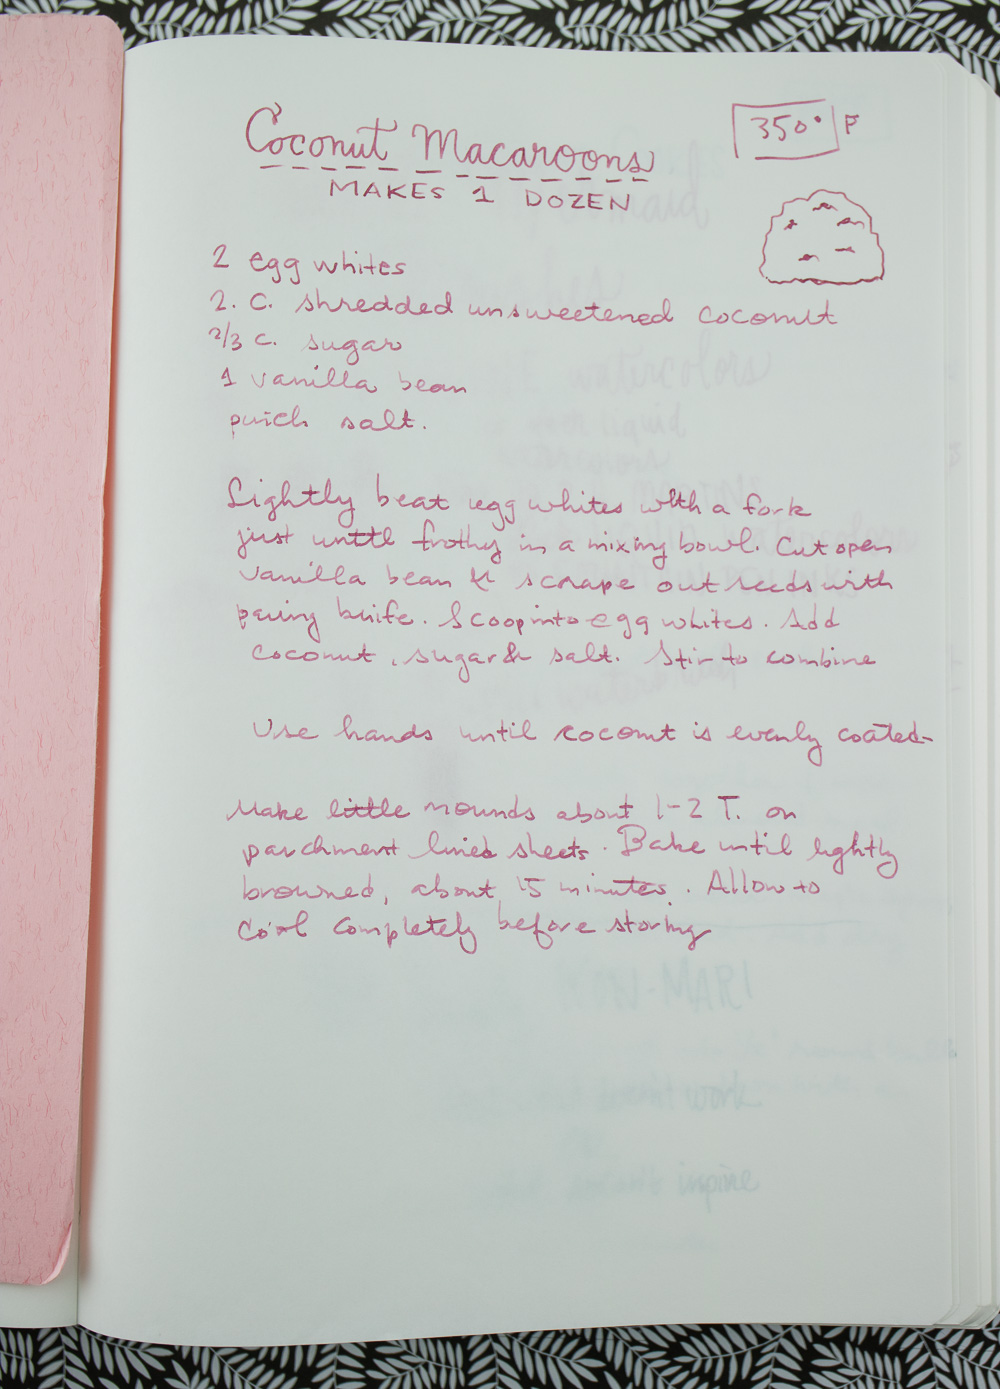 Coconut Macaroons
350° F
MAKES 1 DOZEN
2 egg whites
2. C. shredded unsweetened coconut
2/3 c. sugar
1 vanilla bean
pinch salt.
Lightly beat egg whites with a fork
just until frothy in a mixing bowl. Cut open
vanilla bean & scrape out seeds with
paring knife. Scoop into egg whites. Add
coconut, sugar & salt. Stir to combine
Use hands until coconut is evenly coated
Make little mounds about 1-2 T. on
parchment lined sheets. Bake until lightly
browned, about 15 minutes. Allow to
cool completely before storing